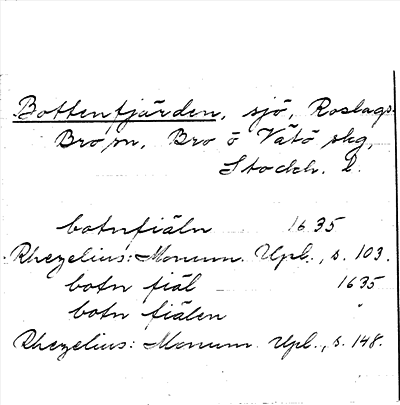 Bottenfjärden, sjö, Roslags-
Bro sn, Bro o Vätö skg,
Stockh. l.
botnfiäln 1635
Rhezelius: Monum. Upl., s. 103.
botn fiäl 1635
botn fiälen "
Rhezelius: Monum. Upl., s. 148.